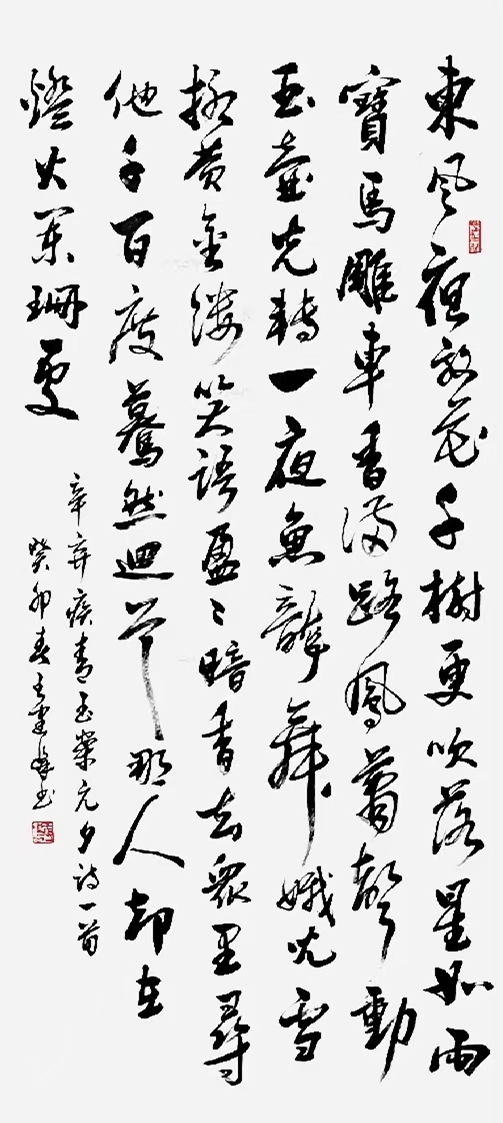 東風夜放花千樹更吹落星如雨
寶馬雕車香滿路鳳簫聲動
玉壺光轉一夜魚龍舞娥兒雪
柳黄金縷笑語盈〻暗香去眾里尋
他千百度驀然迴首那人却在
燈火闌珊處
辛弃疾青玉案元夕詩一首
癸卯春王峰书